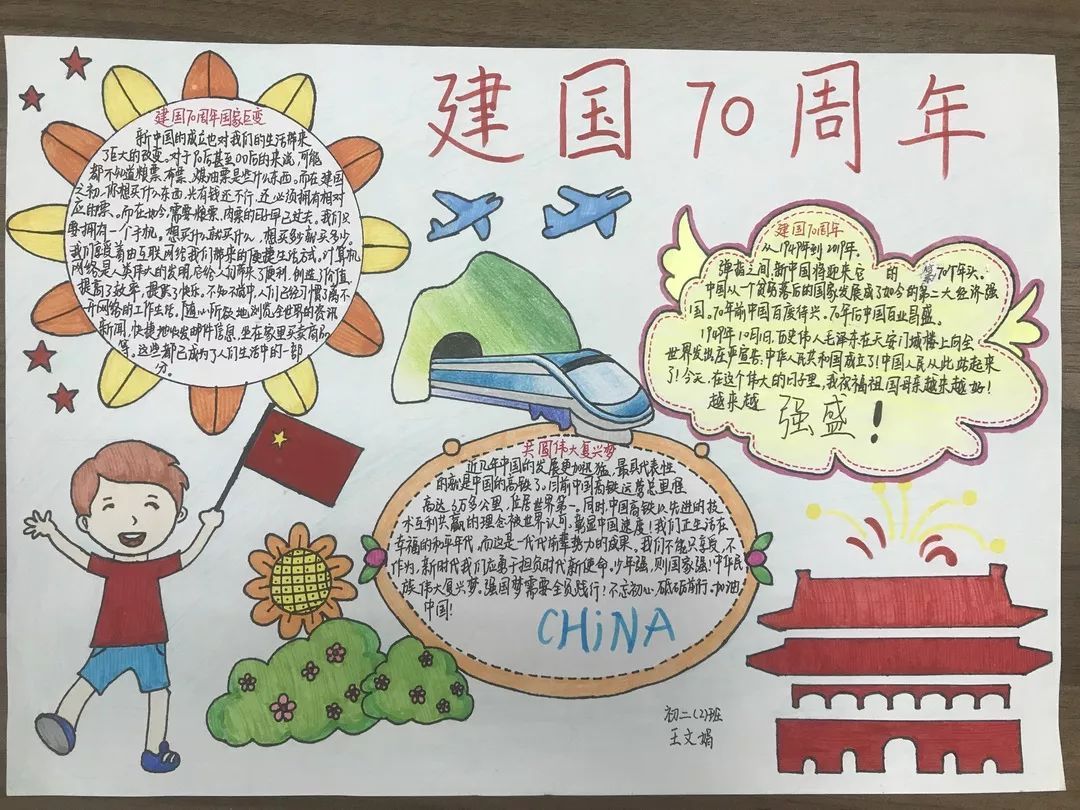 建国70周年
建国70周年国家巨变
新中国的成立也对我们的生活带来
了巨大的改变。对于90后甚至00后的来说，可能
都不知道粮票、布票、煤油票是些什么东西。而在建国
之初，你想买什么东西，光有钱还不行，还必须拥有相对
应的票。而在如今，需要粮票、肉票的日子早已过去。我们只
要拥有一个手机。想买什么就买什么，想买多少就买多少。
我们享受着由互联网络给我们带来的便捷生活方式。计算机
网络是人类伟大的发明，它给人们带来了便利，创造了价值，
提高了效率，提供了快乐。不知不觉中，人们已经习惯了离不
开网络的工作生活。随心所欲地浏览全世界的资讯
新闻，快捷地收发邮件信息，坐在家里买卖商品
等。这些都已成为了人们生活中的一部
分。
建国70周年
从1949年到2019年。
弹指之间，新中国将迎来它 的 第70个年头。
中国从一个贫穷落后的国家发展成了如今的第二大经济强
国。70年前中国百废待兴、70年后中国百业昌盛。
1949年10月1日，历史伟人毛泽东在天安门城楼上向全
世界发出庄严宣告：中华人民共和国成立了！中国人民从此站起来
了！今天，在这个伟大的日子里，我祝福祖国母亲越来越好！
越来越 强盛！
共圆伟大复兴梦
近几年中国的发展更加迅猛，最具代表性
的就是中国的高铁了。目前中国高铁运营总里程
高达3万多公里，位居世界第一。同时，中国高铁以先进的技
术互利共赢的理念被世界认可，彰显中国速度！我们正生活在
幸福的和平年代，而这是一代代前辈努力的成果。我们不能只享受，不
作为，新时代我们应勇于担负时代新使命。少年强，则国家强！中华民
族伟大复兴梦。强国梦需要全员践行！不忘初心，砥砺前行。加油
中国！
CHiNA
初二(2)班
王文娟